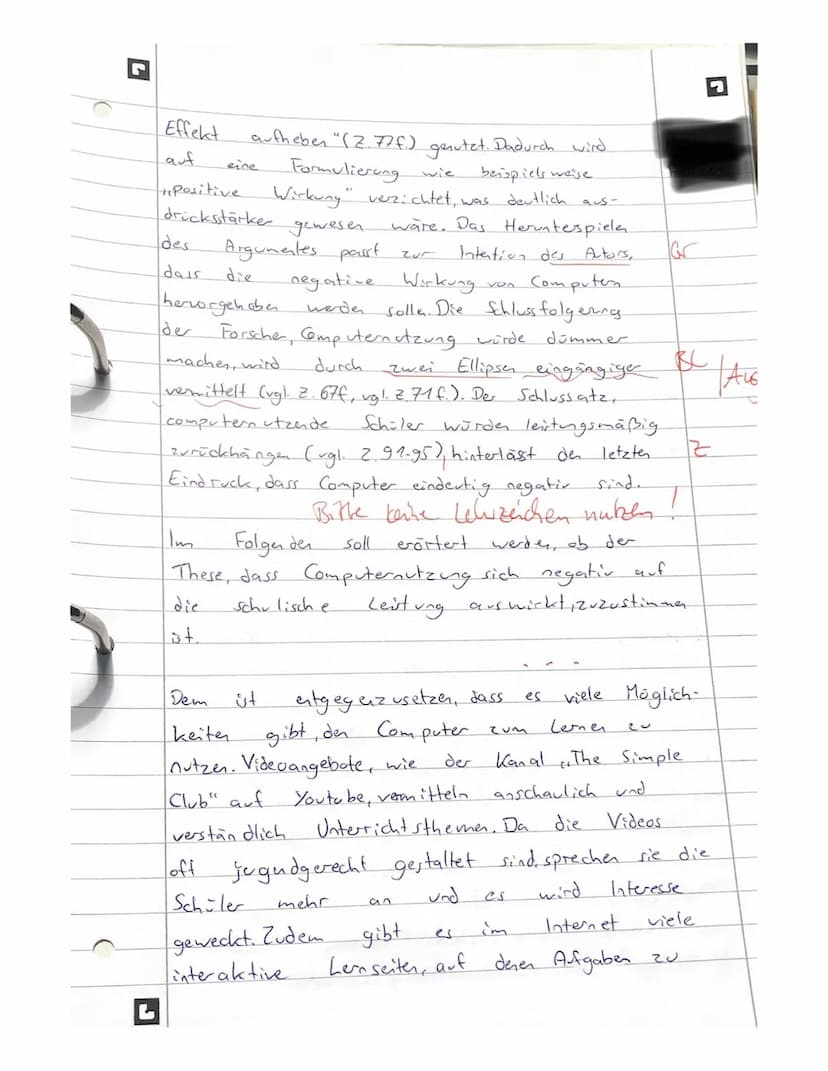 Effekt aufheben" (Z. 77f.) genutzt. Dadurch wird
auf eine Formulierung wie beispielsweise
„positive Wirkung" verzichtet, was deutlich aus-
drücksstärker gewesen wäre. Das Herunterspielen
des Argumentes passt zur Intention des Autors, Gr
dass die negative Wirkung von Computern
hervorgehoben werden solle. Die Schlussfolgerung
der Forscher, Computernutzung würde dümmer
machen, wird durch zwei Ellipsen eingängiger
vermittelt (vgl. Z. 67f, vgl. Z. 71f.). Der Schlussatz,
computernutzende Schüler würden leistungsmäßig
zurückhängen (vgl. Z. 91-95), hinterlässt den letzten Z
Eindruck, dass Computer eindeutig negativ sind.
Bitte keine Leerzeichen nutzen!
Im Folgenden soll erörtert werden, ob der
These, dass Computernutzung sich negativ auf
die schulische Leistung auswirkt, zuzustimmen
ist.
...
Dem ist entgegenzusetzen, dass es viele Möglich-
keiten gibt, den Computer zum Lernen zu
nutzen. Videoangebote, wie der Kanal „The Simple
Club" auf Youtube, vermitteln anschaulich und
verständlich Unterrichtsthemen. Da die Videos
oft jugendgerecht gestaltet sind, sprechen sie die
Schüler mehr an und es wird Interesse
geweckt. Zudem gibt es im Internet viele
interaktive Lernseiten, auf denen Aufgaben zu